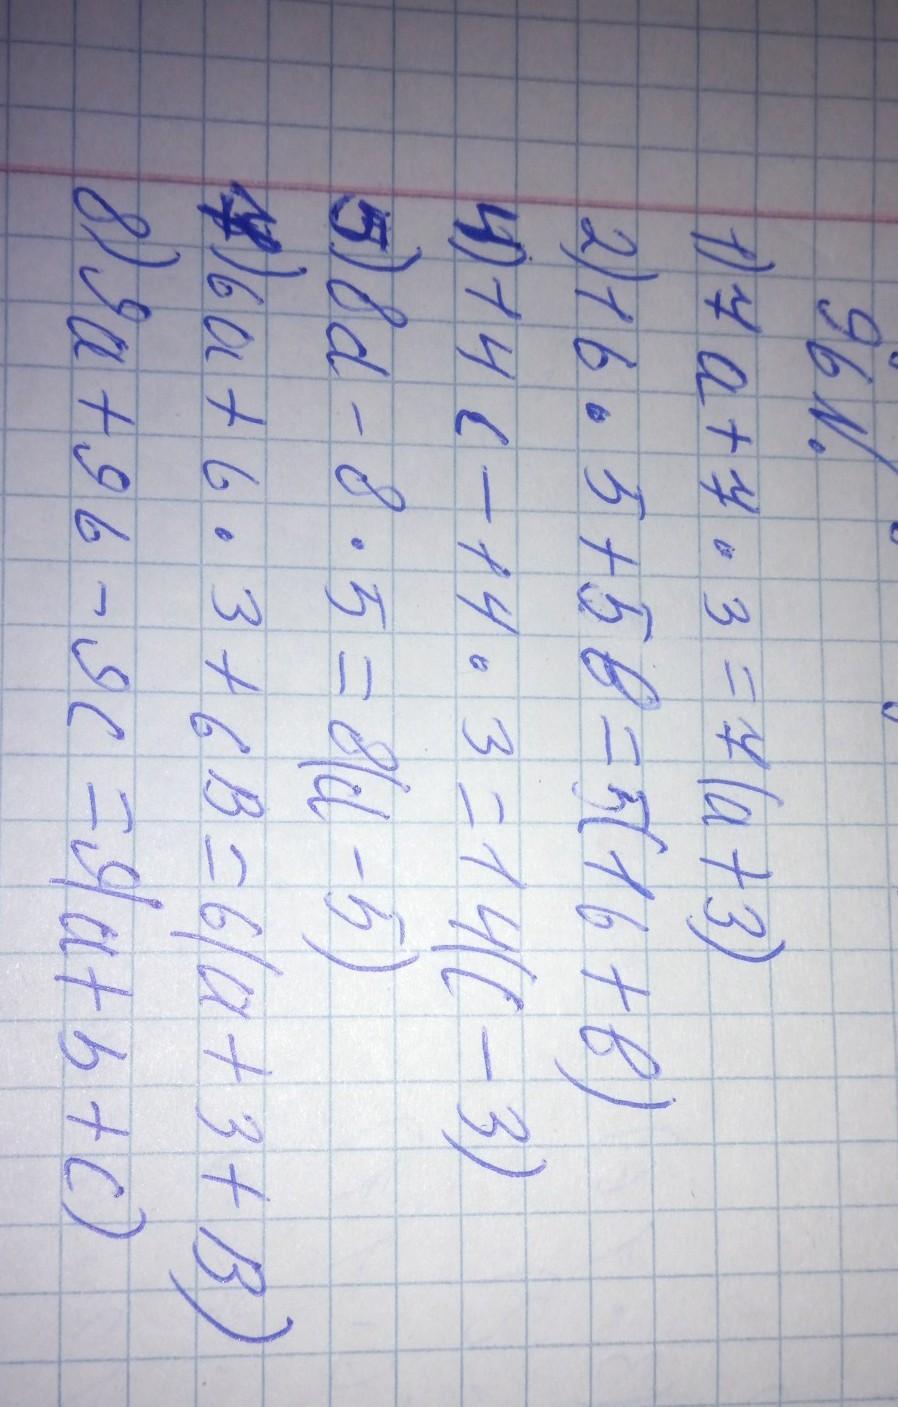 96 N.
1) 7a + 7 · 3 = 7(a + 3)
2) 16 · 5 + 5b = 5(16 + b)
4) 14c - 14 · 3 = 14(c - 3)
5) 8d - 8 · 5 = 8(d - 5)
7) 6a + 6 · 3 + 6B = 6(a + 3 + B)
8) 9a + 9b - 9c = 9(a + b + c)